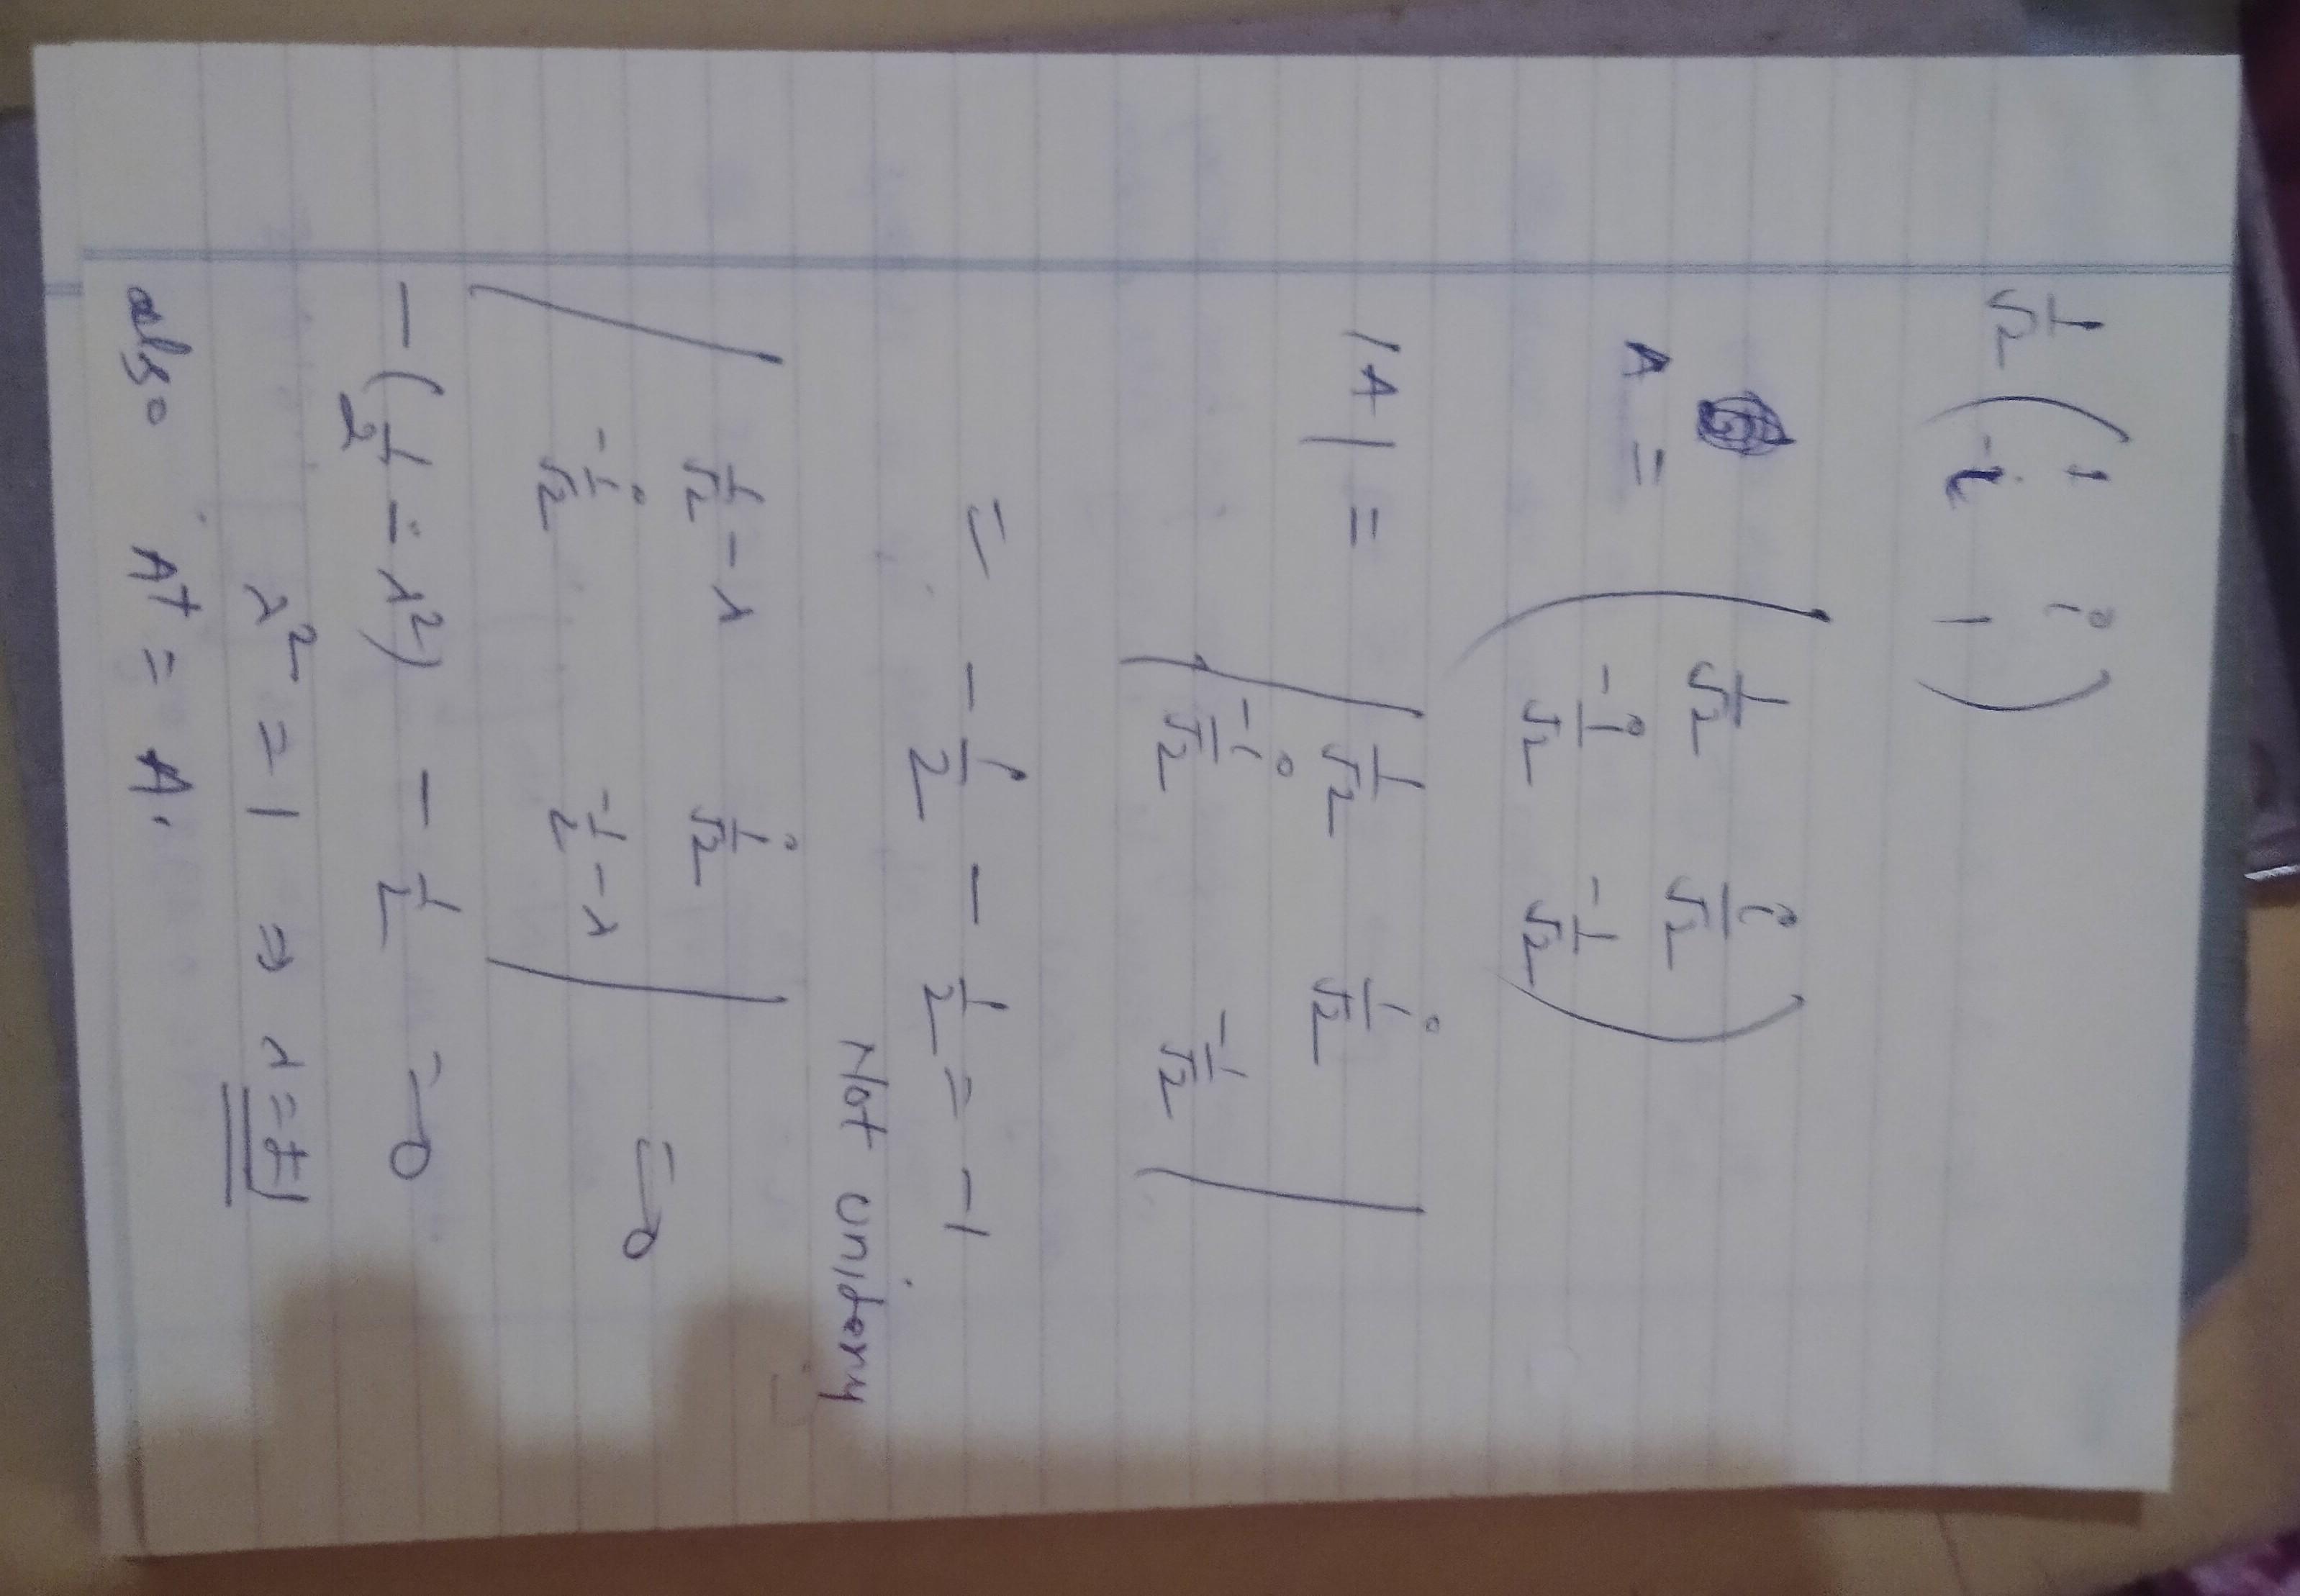 1/√2 ( 1 i
-i 1 )
A = ( 1/√2 i/√2
-i/√2 -1/√2 )
|A| = | 1/√2 i/√2
-i/√2 -1/√2 |
= -1/2 - 1/2 = -1
Not unidery
| 1/√2 - λ i/√2
-i/√2 -1/2 - λ | = 0
-(1/2 - λ²) - 1/2 = 0
λ² = 1 ⇒ λ = ±1
also A† = A.